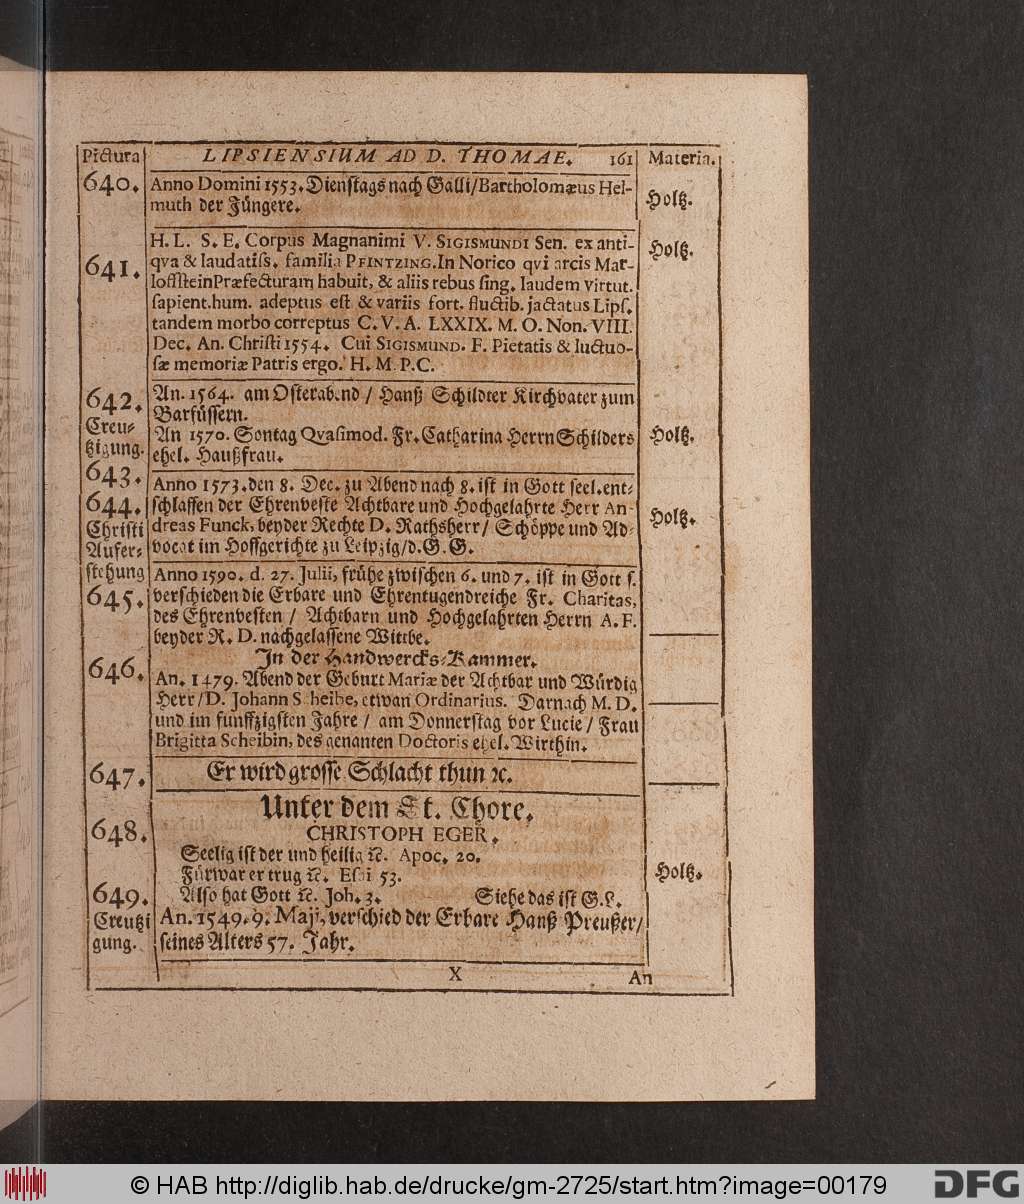 Pictura LIPSIENSIUM AD D. THOMAE. 161 Materia.
640. Anno Domini 1553. Dienſtags nach Galli/Bartholomæus Hel-
muth der Jüngere. Holtz.
H. L. S. E. Corpus Magnanimi V. SIGISMUNDI Sen. ex anti- Holtz.
641. qva & laudatiſs. familia PFINTZING. In Norico qvi arcis Mar-
loffſtein Præfecturam habuit, & aliis rebus ſing. laudem virtut.
ſapient. hum. adeptus eſt & variis fort. fluctib. jactatus Lipſ.
tandem morbo correptus C. V. A. LXXIX. M. O. Non. VIII.
Dec. An. Chriſti 1554. Cui SIGISMUND. F. Pietatis & luctuo-
ſæ memoriæ Patris ergo. H. M. P. C.
642. An. 1564. am Oſterabend / Hanß Schildter Kirchvater zum
Creu- Barfüſſern.
tzigung. An 1570. Sontag Qvaſimod. Fr. Catharina Herrn Schilders Holtz.
ehel. Haußfrau.
643. Anno 1573. den 8. Dec. zu Abend nach 8. iſt in Gott ſeel. ent-
644. ſchlaffen der Ehrenveſte Achtbare und Hochgelahrte Herr An-
Chriſti dreas Funck, beyder Rechte D. Rathsherr / Schöppe und Ad- Holtz.
Aufer- vocat im Hoffgerichte zu Leipzig/d. G. G.
ſtehung Anno 1590. d. 27. Julii, frühe zwiſchen 6. und 7. iſt in Gott ſ.
645. verſchieden die Erbare und Ehrentugendreiche Fr. Charitas,
des Ehrenveſten / Achtbarn und Hochgelahrten Herrn A. F.
beyder R. D. nachgelaſſene Wittbe.
In der Handwercks-Kammer.
646. An. 1479. Abend der Geburt Mariæ der Achtbar und Würdig
Herr/D. Johann Scheibe, etwan Ordinarius. Darnach M. D.
und im funffzigſten Jahre / am Donnerſtag vor Lucie / Frau
Brigitta Scheibin, des genanten Doctoris ehel. Wirthin.
647. Er wird groſſe Schlacht thun ꝛc.
Unter dem St. Chore.
648. CHRISTOPH EGER.
Seelig iſt der und heilig ꝛc. Apoc. 20.
Fürwar er trug ꝛc. Eſai 53. Holtz.
649. Alſo hat Gott ꝛc. Joh. 3. Siehe das iſt G. L.
Creutzi An. 1549. 9. Maji, verſchied der Erbare Hanß Preußer/
gung. ſeines Alters 57. Jahr.
X An
© HAB http://diglib.hab.de/drucke/gm-2725/start.htm?image=00179
DFG